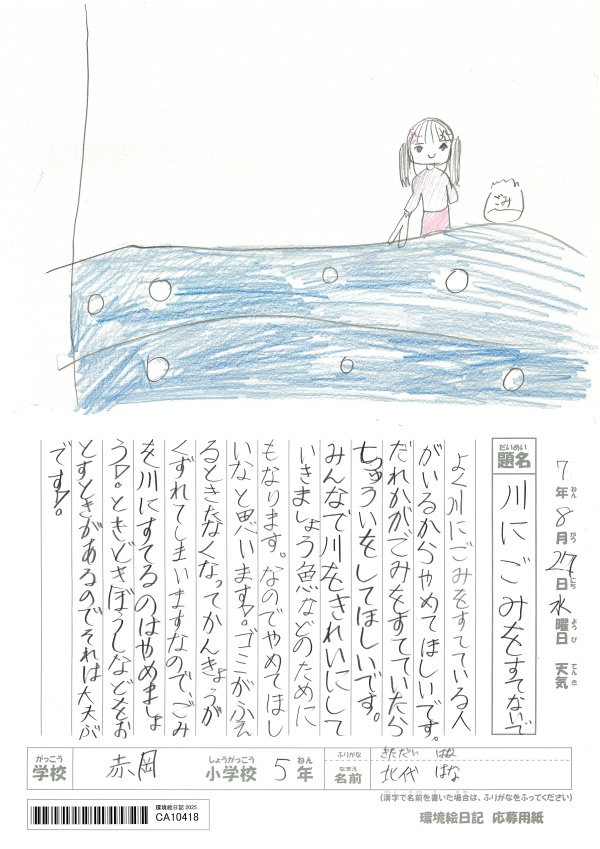 ごみ
7年8月27日水曜日 天気
ねん がつ にち ようび てんき
だいめい
題名 川にごみをすてないで
よく川にごみをすてている人
がいるからやめてほしいです。
だれかがごみをすてていたら
ちゅういをしてほしいです。
みんなで川をきれいにして
いきましょう魚などのために
もなります。なのでやめてほし
いなと思います。ゴミがふえ
るときたなくなってかんきょうが
くずれてしまいますなので、ごみ
を川にすてるのはやめましょ
う。ときどきぼうしなどをお
とすときがあるのでそれは大夫が
です。
がっこう しょうがっこう ねん
学校 赤岡 小学校 5年
ふりがな きただい はな
なまえ
名前 北代 はな
(漢字で名前を書いた場合は、ふりがなをふってください)
環境絵日記 2025
CA10418
環境絵日記 応募用紙